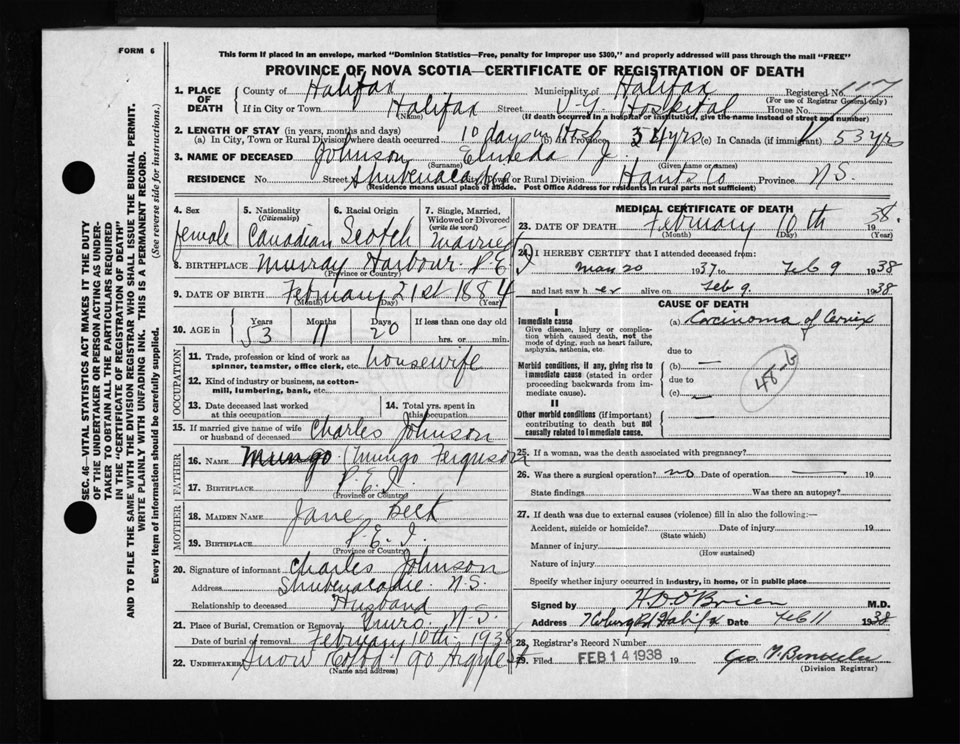 FORM 6
This form if placed in an envelope, marked "Dominion Statistics—Free, penalty for improper use $300," and properly addressed will pass through the mail "FREE"
PROVINCE OF NOVA SCOTIA—CERTIFICATE OF REGISTRATION OF DEATH
1. PLACE OF DEATH County of Halifax Municipality of Halifax Registered No.
(For use of Registrar General only)
If in City or Town Halifax Street V.G. Hospital House No.
(Name) (If death occurred in a hospital or institution, give the name instead of street and number)
2. LENGTH OF STAY (in years, months and days)
(a) In City, Town or Rural Division where death occurred 10 days in Hosp (b) in Province 34 yrs (c) In Canada (if immigrant) 53 yrs
3. NAME OF DECEASED Johnson J.
(Surname) (Given name or names)
RESIDENCE No. Street Shubenacadie City, Town or Rural Division Hants Co Province N.S.
(Residence means usual place of abode. Post Office Address for residents in rural parts not sufficient)
4. Sex 5. Nationality 6. Racial Origin 7. Single, Married, Widowed or Divorced
(Citizenship) (write the word)
female Canadian Scotch Married
8. BIRTHPLACE Murray Harbour P.E.I
(Province or Country)
9. DATE OF BIRTH February 21st 1884
(Month) (Day) (Year)
10. AGE in Years Months Days If less than one day old
53 11 20 hrs. or min.
OCCUPATION
11. Trade, profession or kind of work as spinner, teamster, office clerk, etc. housewife
12. Kind of industry or business, as cotton-mill, lumbering, bank, etc.
13. Date deceased last worked at this occupation
14. Total yrs. spent in this occupation
15. If married give name of wife or husband of deceased Charles Johnson
FATHER
16. NAME Mungo (Mungo Ferguson
17. BIRTHPLACE P.E.I.
(Province or Country)
MOTHER
18. MAIDEN NAME Jane Beck
19. BIRTHPLACE P.E.I.
(Province or Country)
20. Signature of informant Charles Johnson
Address Shubenacadie N.S.
Relationship to deceased Husband
21. Place of Burial, Cremation or Removal Truro. N.S.
Date of burial or removal February 10th 1938
22. UNDERTAKER Snow 90 Argyle St
(Name and address)
MEDICAL CERTIFICATE OF DEATH
23. DATE OF DEATH February 10th 1938.
(Month) (Day) (Year)
24. I HEREBY CERTIFY that I attended deceased from:
May 20 1937 to Feb 9 1938
and last saw her alive on Feb 9 1938
CAUSE OF DEATH
I
Immediate cause
Give disease, injury or complication which caused death, not the mode of dying, such as heart failure, asphyxia, asthenia, etc.
(a) Carcinoma of Cervix
due to
Morbid conditions, if any, giving rise to immediate cause (stated in order proceeding backwards from immediate cause).
(b) —
due to
(c) —
48-b
II
Other morbid conditions (if important) contributing to death but not causally related to immediate cause.
25. If a woman, was the death associated with pregnancy?
26. Was there a surgical operation? no Date of operation — 19
State findings Was there an autopsy?
27. If death was due to external causes (violence) fill in also the following:—
Accident, suicide or homicide? Date of injury 19
(State which)
Manner of injury
(How sustained)
Nature of injury
Specify whether injury occurred in industry, in home, or in public place
Signed by H D O'Brien M.D.
Address 7 Coburg Rd Halifax Date Feb 11 1938
28. Registrar's Record Number
29. Filed FEB 14 1938 19
(Division Registrar)
SEC. 46—VITAL STATISTICS ACT MAKES IT THE DUTY OF THE UNDERTAKER OR PERSON ACTING AS UNDERTAKER TO OBTAIN ALL THE PARTICULARS REQUIRED IN THE "CERTIFICATE OF REGISTRATION OF DEATH" AND TO FILE THE SAME WITH THE DIVISION REGISTRAR WHO SHALL ISSUE THE BURIAL PERMIT.
WRITE PLAINLY WITH UNFADING INK. THIS IS A PERMANENT RECORD.
Every item of information should be carefully supplied. (See reverse side for instructions.)